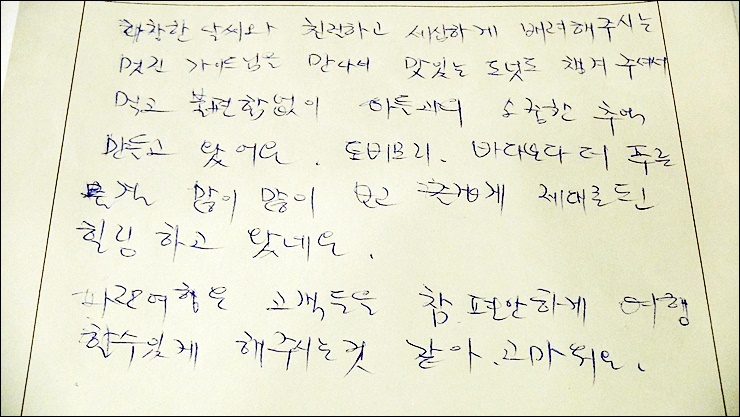 화창한 날씨와 친절하고 세심하게 배려해주시는
멋진 가이드님을 만나서 맛있는 도넛도 챙겨 주셔서
먹고 불편함없이 아들과의 소중한 추억
만들고 왔어요. 토비모리. 바다보다 더 푸른
물결 많이 많이 보고 즐겁게 제대로된
힐링 하고 왔네요.
파란여행은 고객들을 참 편안하게 여행
할수있게 해주시는것 같아. 고마워요.